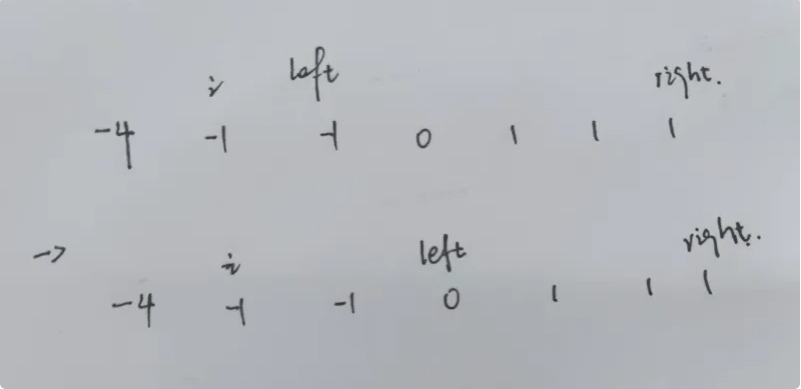 i left right.
-4 -1 -1 0 1 1 1
-> i left right.
-4 -1 -1 0 1 1 1